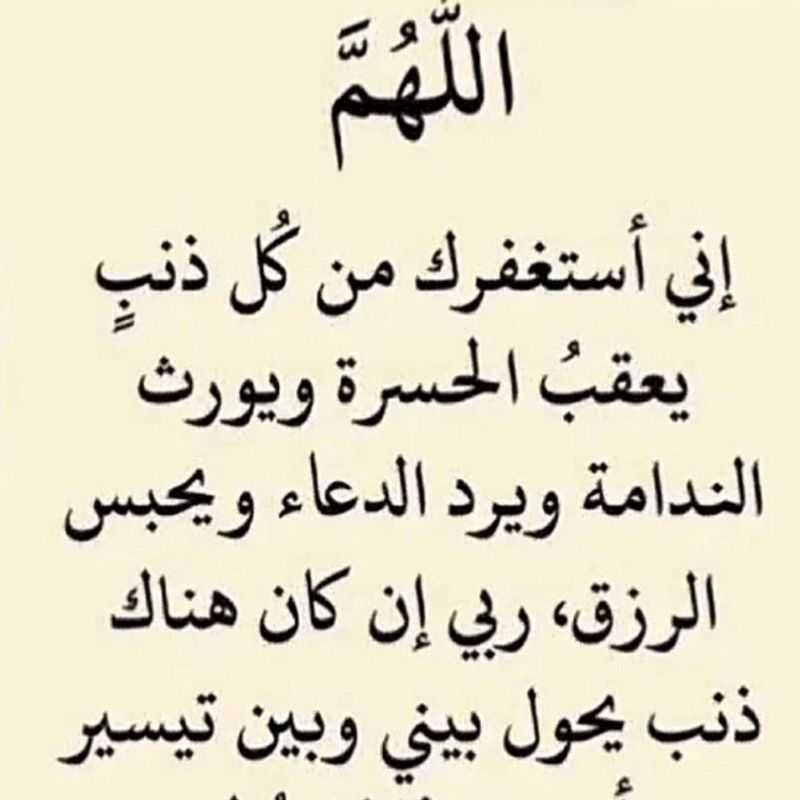 اللَّهُمَّ
إني أستغفرك من كُل ذنبٍ
يعقبُ الحسرة ويورث
الندامة ويرد الدعاء ويحبس
الرزق، ربي إن كان هناك
ذنب يحول بيني وبين تيسير